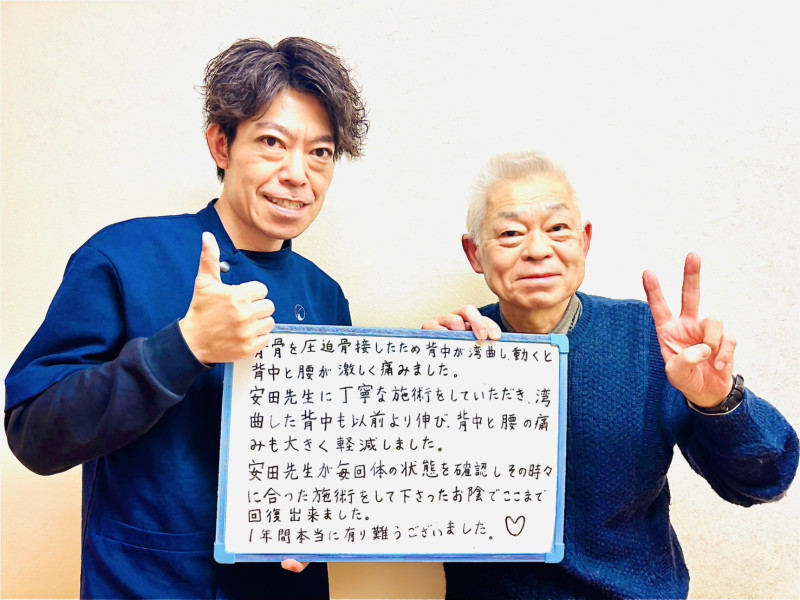 骨を圧迫骨接したため背中が湾曲し、動くと
背中と腰が激しく痛みました。
安田先生に丁寧な施術をしていただき、湾
曲した背中も以前より伸び、背中と腰の痛
みも大きく軽減しました。
安田先生が毎回体の状態を確認しその時々
に合った施術をして下さったお陰でここまで
回復出来ました。
1年間本当に有り難うございました。♡